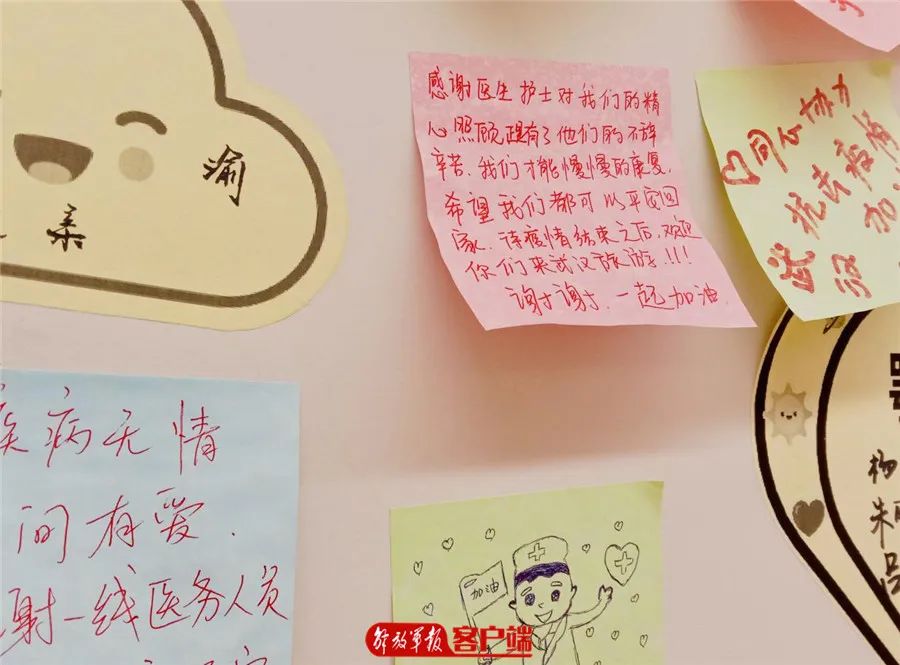 瑜
柔
感谢医生护士对我们的精
心照顾,正有了他们的不辞
辛苦,我们才能慢慢的康复,
希望我们都可以平安回
家,待疫情结束之后,欢迎
你们来武汉旅游!!!
谢谢谢谢,一起加油.
同心协力
抗击疫情
武汉加
疾病无情
间有爱.
谢一线医务人员
加油
杨
朱
吕
解放军报 客户端